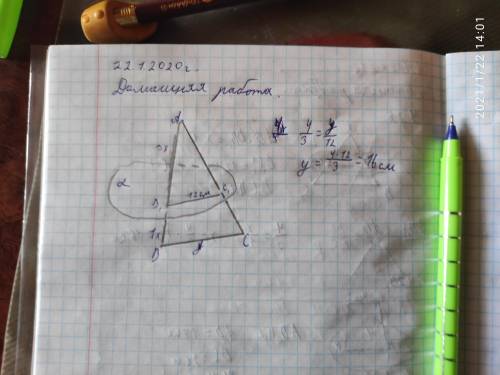 22.1.2020г.
Домашняя работа.
A
3x
α
B₁ 12см C₁
1x
B y C
4/3 = y/12
y = 4·12/3 = 16см
2021/1/22 14:01